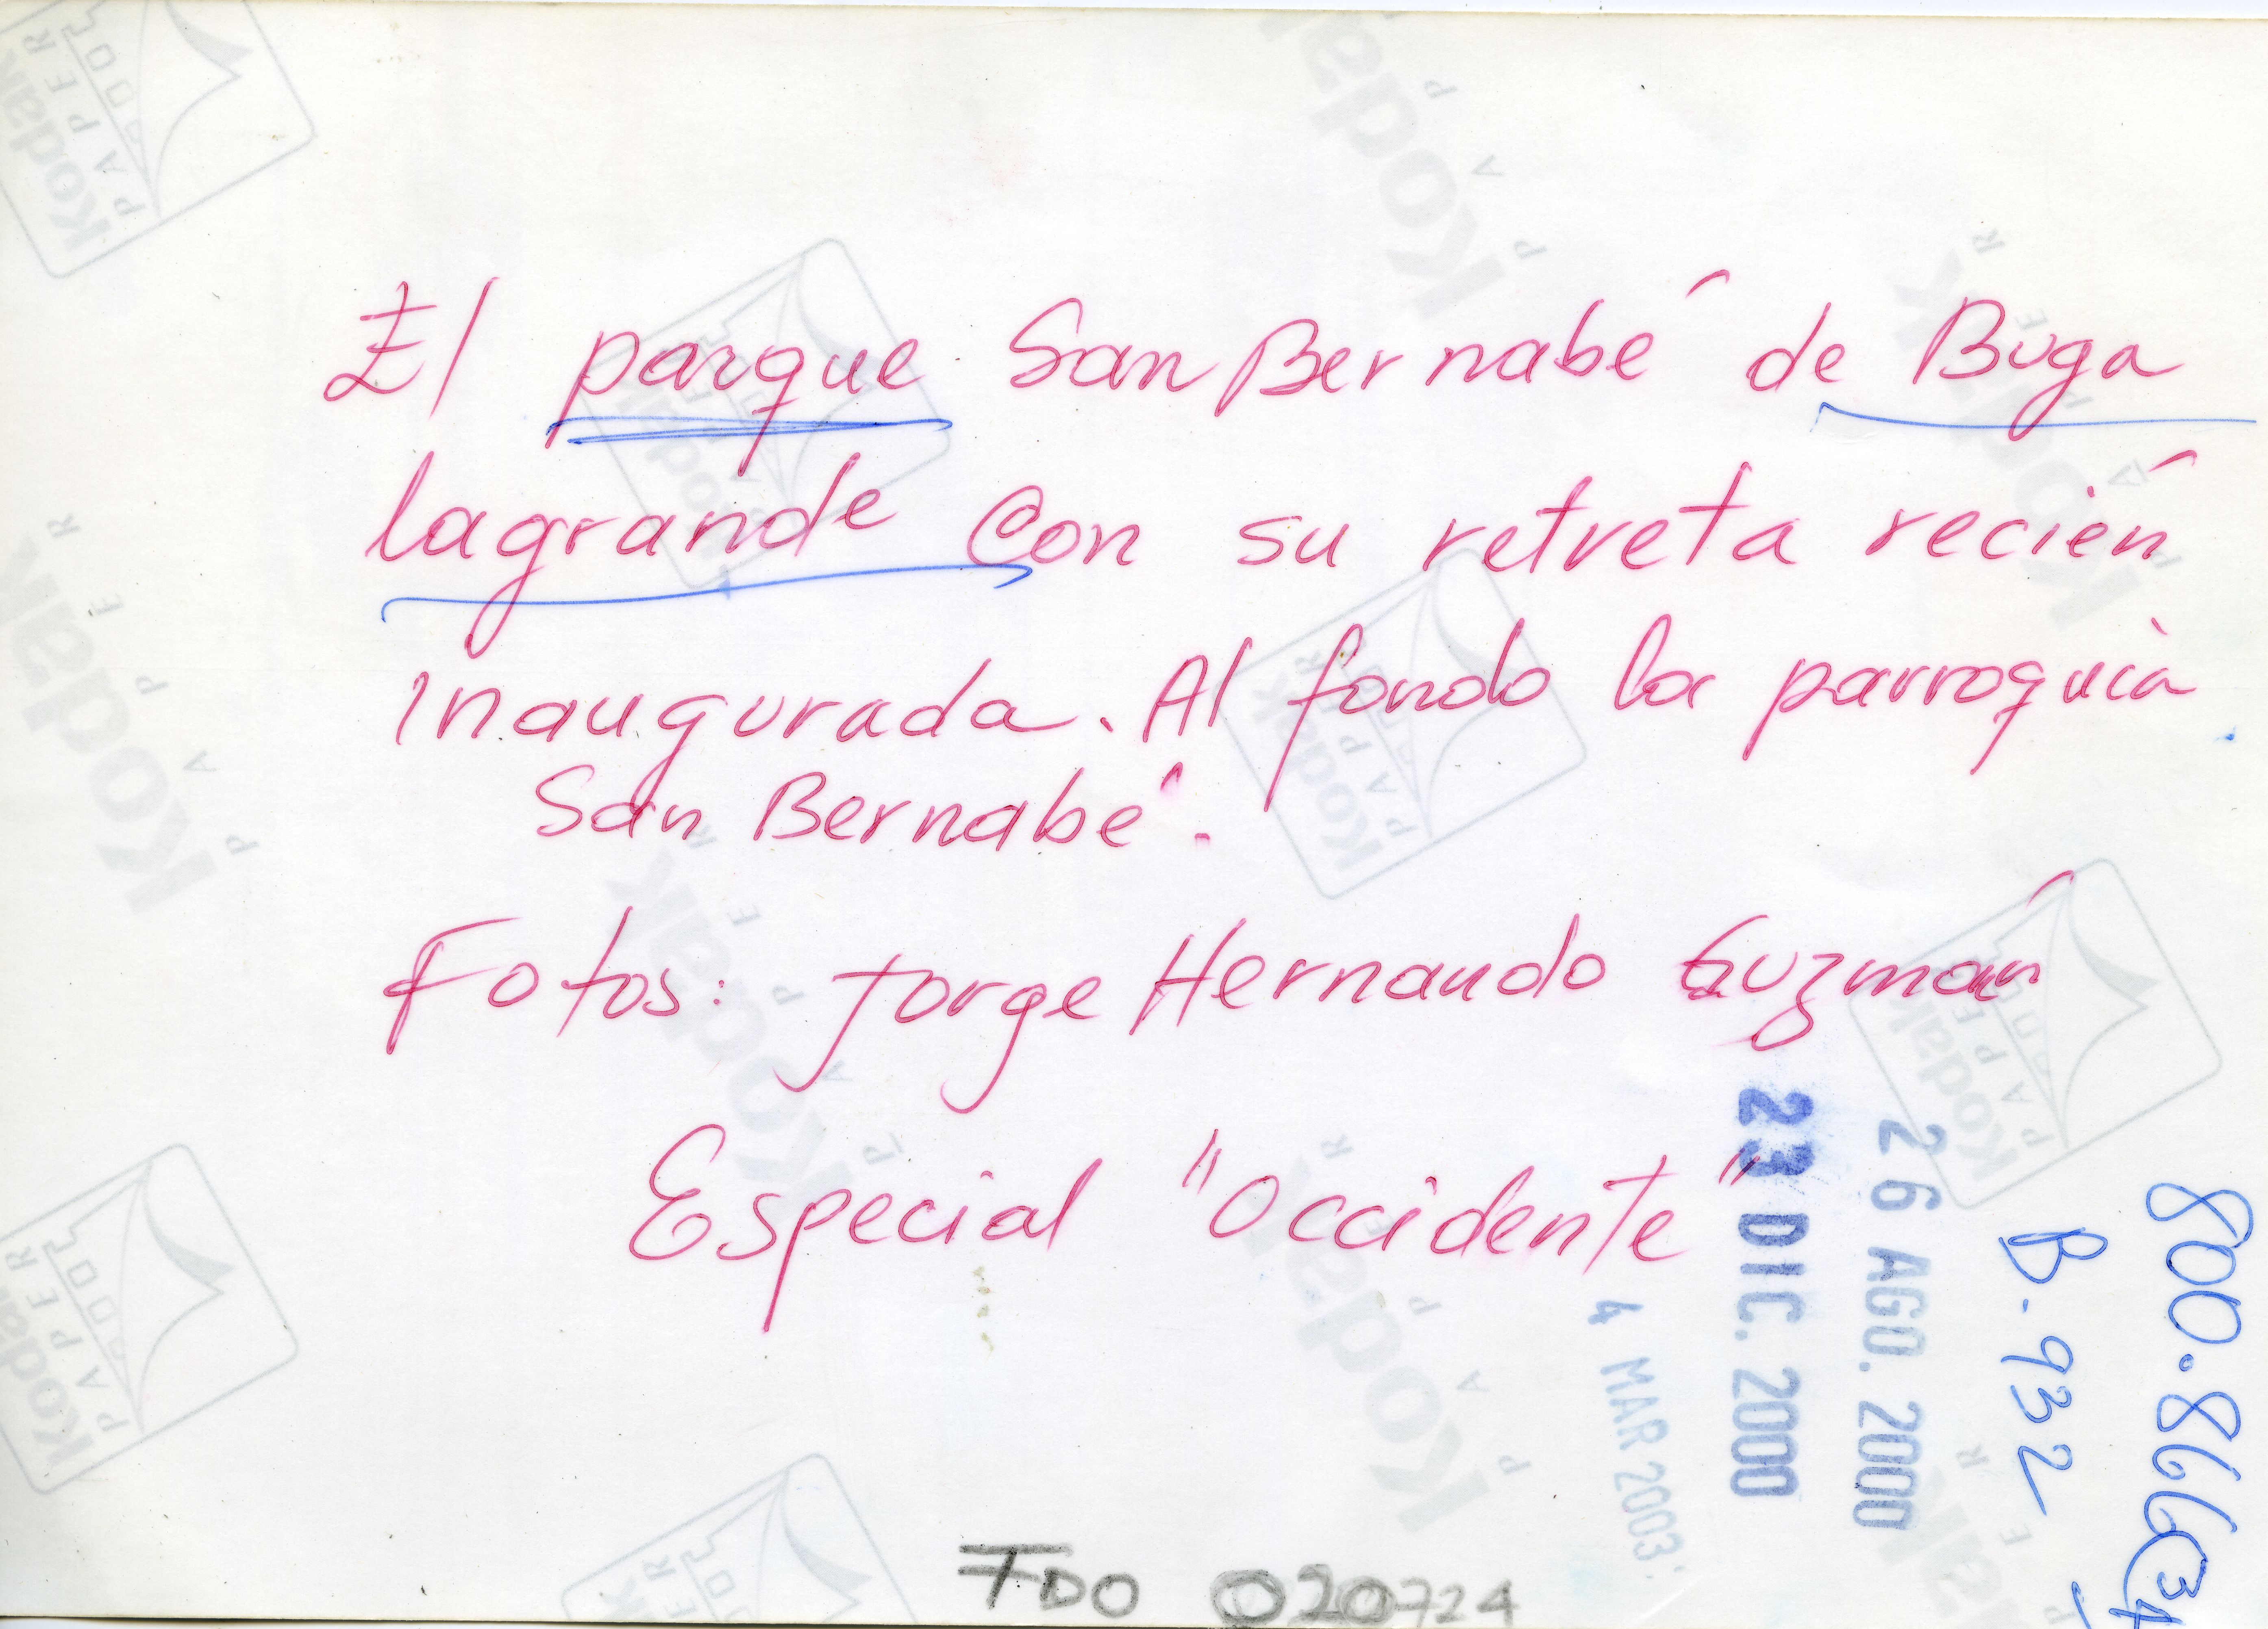 El parque San Bernabé de Buga
lagrande Con su retreta recién
inaugurada. Al fondo la parroquia
San Bernabé.
Fotos: Jorge Hernando Guzmán
Especial "Occidente"
23 DIC. 2000
26 AGO. 2000
4 MAR 2003
B-932
800.866
FDO 020724
Kodak
PAPER